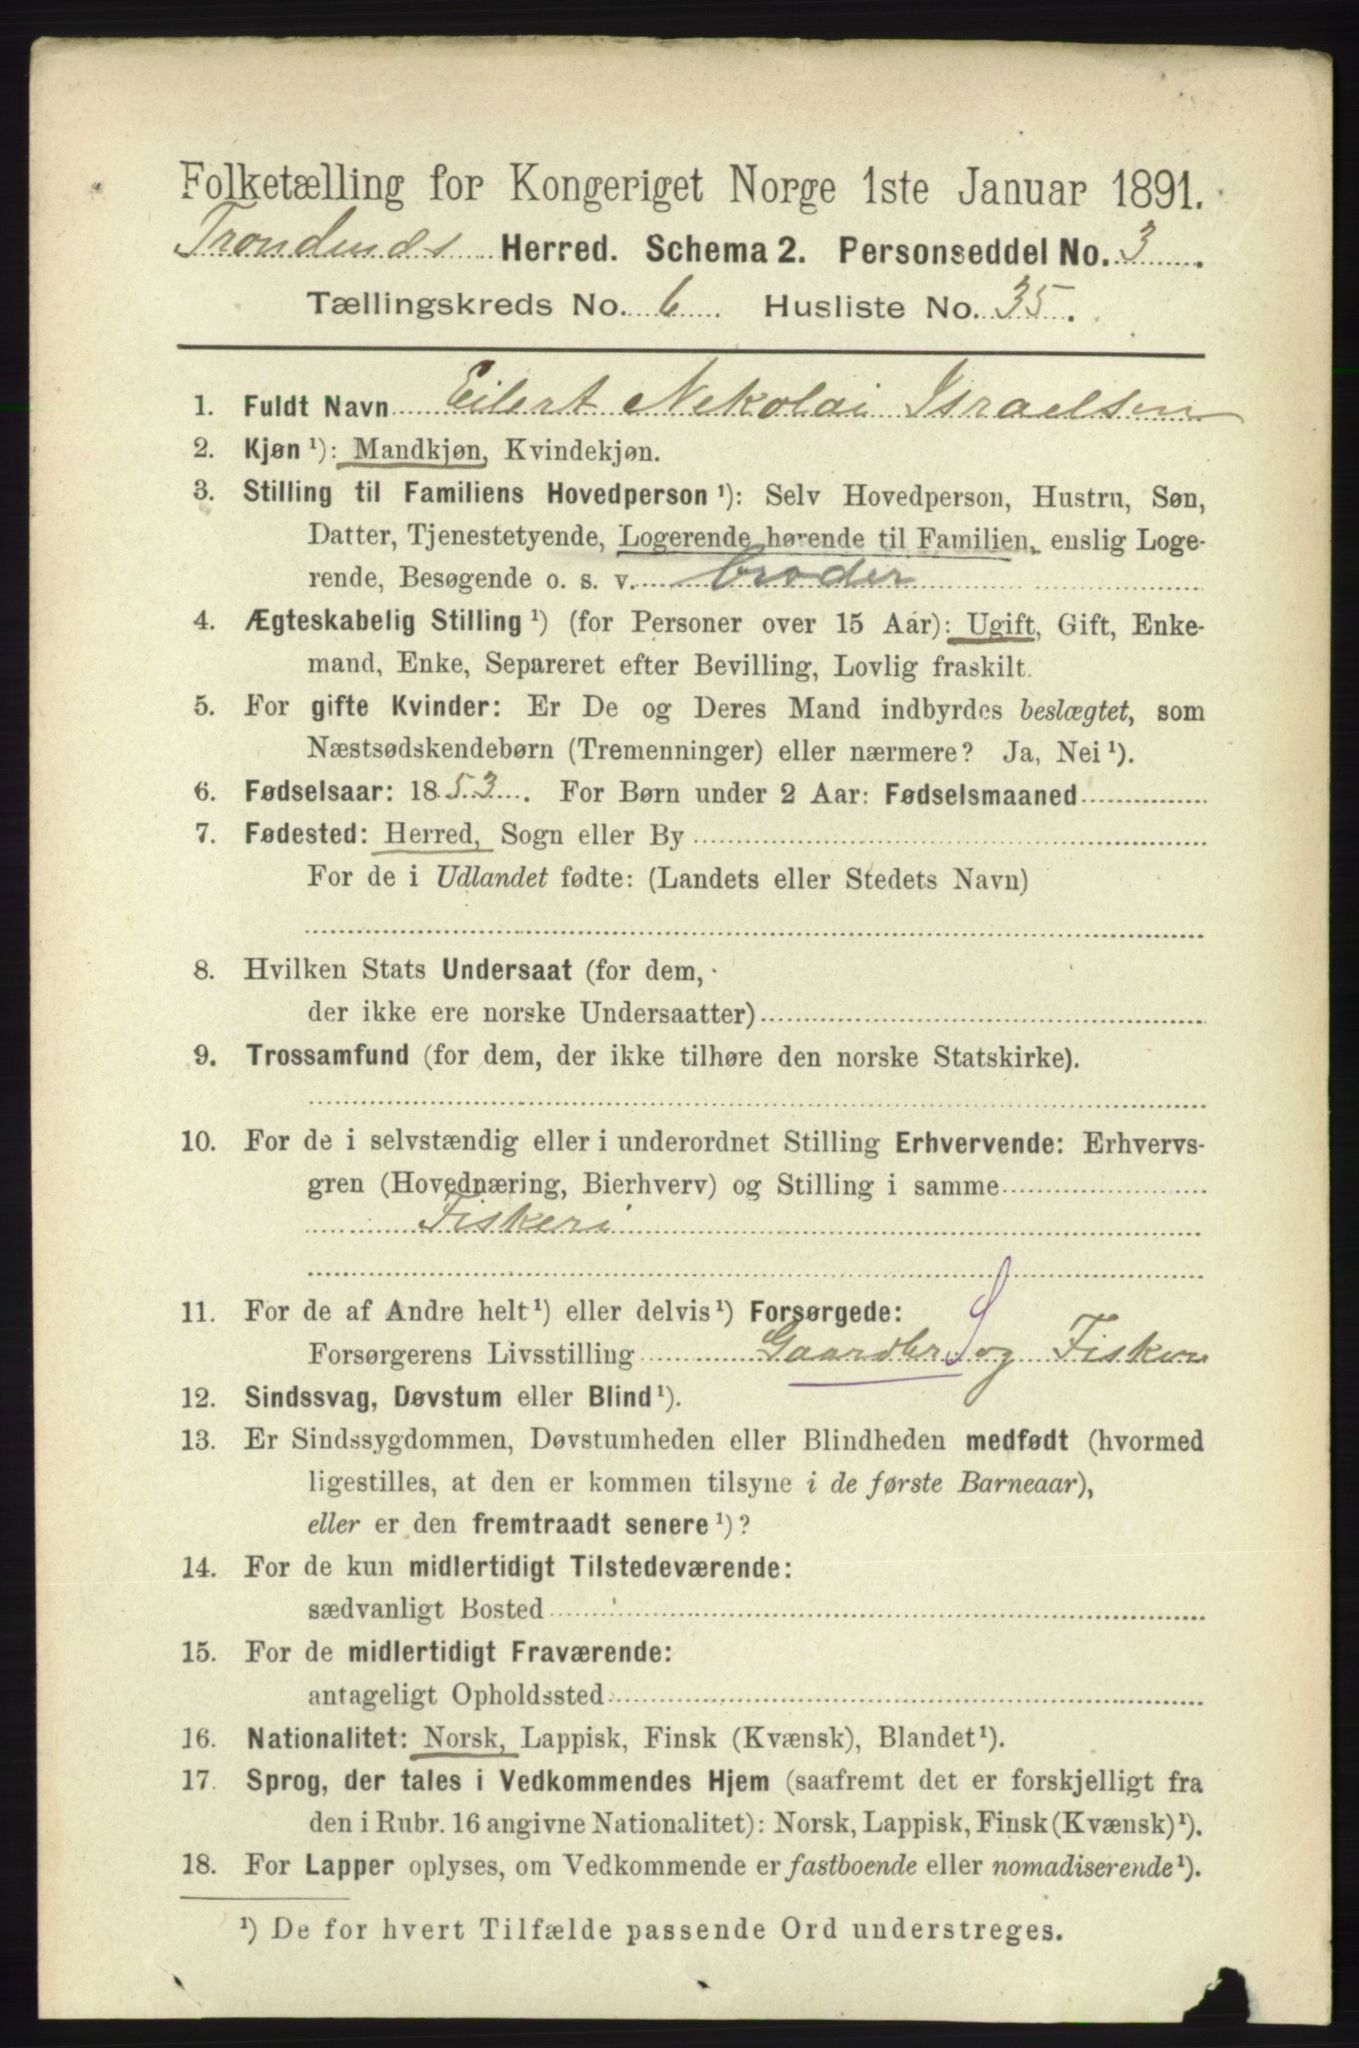 Folketælling for Kongeriget Norge 1ste Januar 1891.
Trondenæs Herred. Schema 2. Personseddel No. 3.
Tællingskreds No. 6. Husliste No. 35.
1. Fuldt Navn Eilert Nekolai Israelsen
2. Kjøn ¹): Mandkjøn, Kvindekjøn.
3. Stilling til Familiens Hovedperson ¹): Selv Hovedperson, Hustru, Søn,
Datter, Tjenestetyende, Logerende hørende til Familien, enslig Loge-
rende, Besøgende o. s. v. broder
4. Ægteskabelig Stilling ¹) (for Personer over 15 Aar): Ugift, Gift, Enke-
mand, Enke, Separeret efter Bevilling, Lovlig fraskilt.
5. For gifte Kvinder: Er De og Deres Mand indbyrdes beslægtet, som
Næstsødskendebørn (Tremenninger) eller nærmere? Ja, Nei ¹).
6. Fødselsaar: 1853. For Børn under 2 Aar: Fødselsmaaned
7. Fødested: Herred, Sogn eller By
For de i Udlandet fødte: (Landets eller Stedets Navn)
8. Hvilken Stats Undersaat (for dem,
der ikke ere norske Undersaatter)
9. Trossamfund (for dem, der ikke tilhøre den norske Statskirke).
10. For de i selvstændig eller i underordnet Stilling Erhvervende: Erhvervs-
gren (Hovednæring, Bierhverv) og Stilling i samme
Fiskeri
11. For de af Andre helt ¹) eller delvis ¹) Forsørgede:
Forsørgerens Livsstilling Gaardbr S og Fisker
12. Sindssvag, Døvstum eller Blind ¹).
13. Er Sindssygdommen, Døvstumheden eller Blindheden medfødt (hvormed
ligestilles, at den er kommen tilsyne i de første Barneaar),
eller er den fremtraadt senere ¹)?
14. For de kun midlertidigt Tilstedeværende:
sædvanligt Bosted
15. For de midlertidigt Fraværende:
antageligt Opholdssted
16. Nationalitet: Norsk, Lappisk, Finsk (Kvænsk), Blandet ¹).
17. Sprog, der tales i Vedkommendes Hjem (saafremt det er forskjelligt fra
den i Rubr. 16 angivne Nationalitet): Norsk, Lappisk, Finsk (Kvænsk) ¹).
18. For Lapper oplyses, om Vedkommende er fastboende eller nomadiserende ¹).
¹) De for hvert Tilfælde passende Ord understreges.